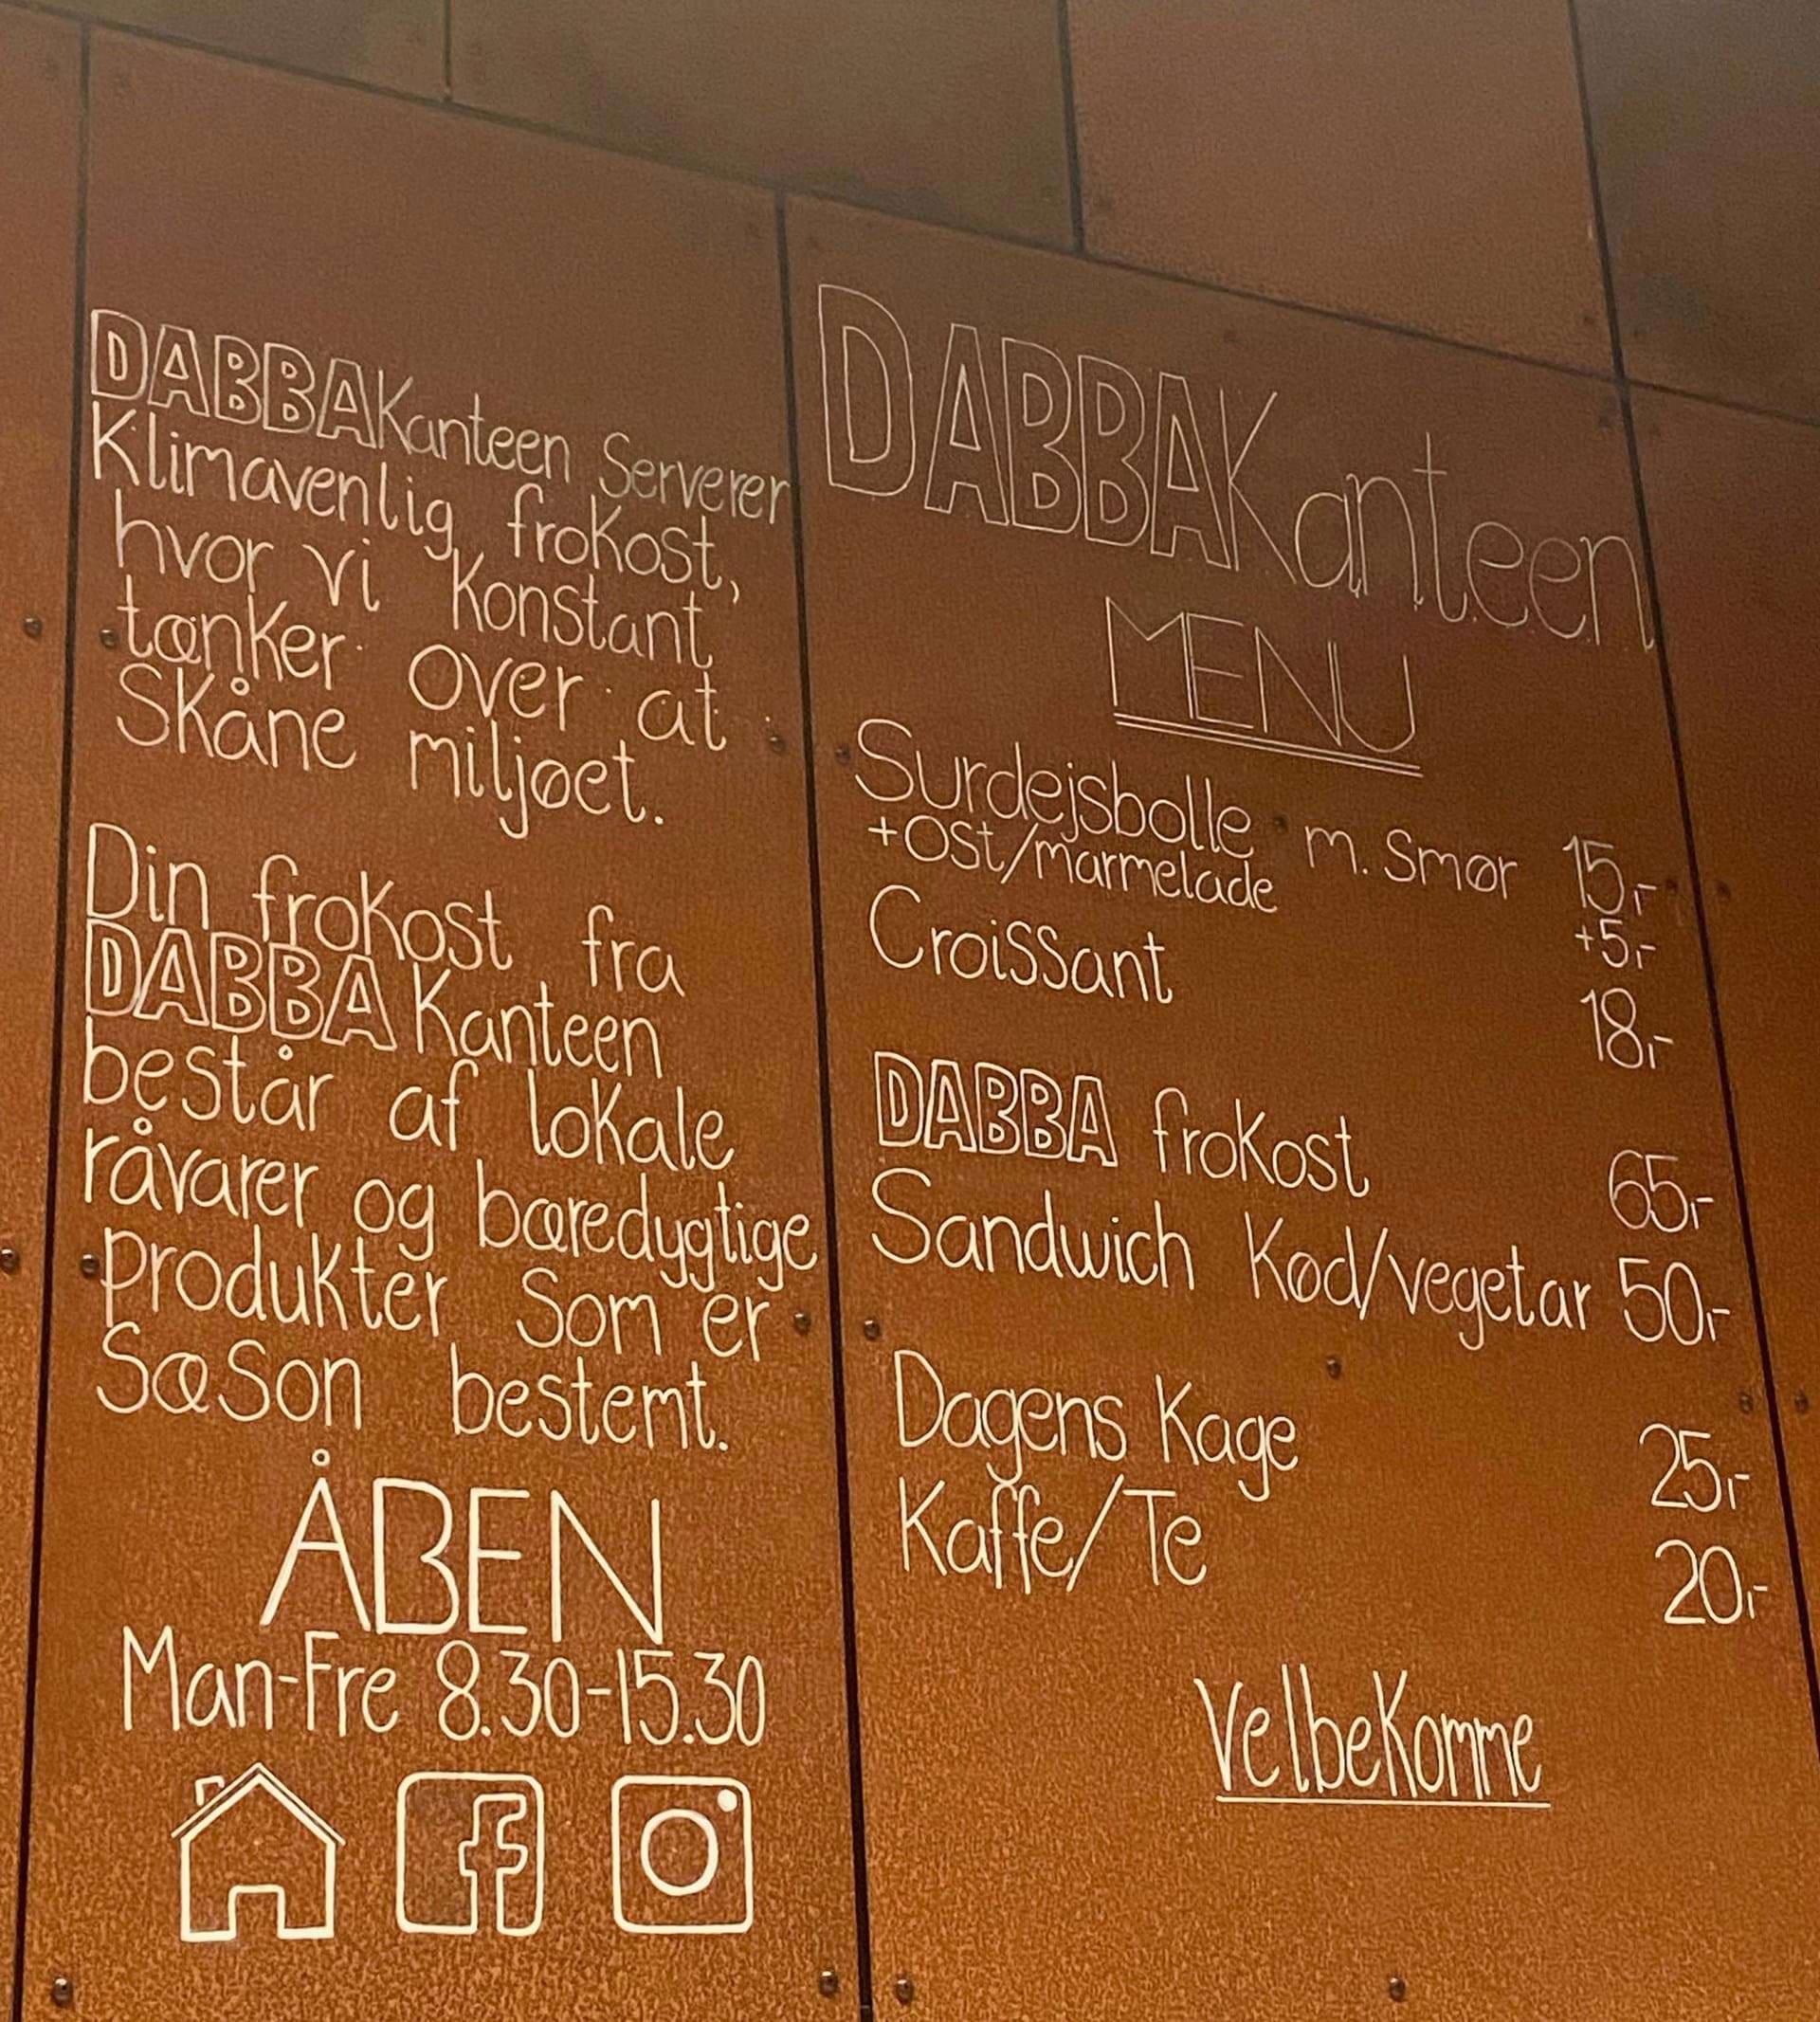 DABBAKanteen Serverer
Klimavenlig frokost,
hvor vi konstant
tænker over at
Skåne miljøet.
Din frokost fra
DABBA Kanteen
består af lokale
råvarer og bæredygtige
produkter som er
Sæson bestemt.
ÅBEN
Man-Fre 8.30-15.30
DABBAKanteen
MENU
Surdejsbolle m. Smør 15,-
+Ost/marmelade +5,-
Croissant 18,-
DABBA frokost 65,-
Sandwich Kød/vegetar 50,-
Dagens Kage 25,-
Kaffe/Te 20,-
Velbekomme